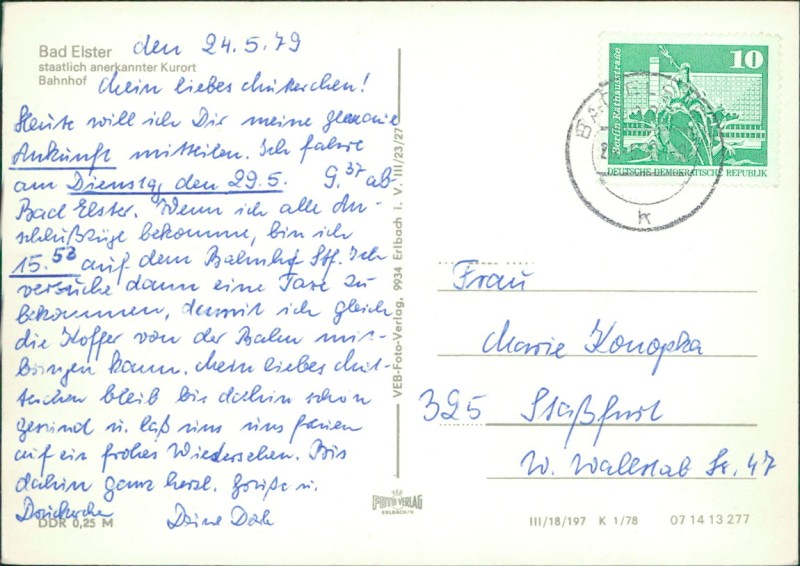 Bad Elster
den 24.5.79
staatlich anerkannter Kurort
Bahnhof
Mein liebes Mütterchen!
Heute will ich Dir meine genaue
Ankunft mitteilen. Ich fahre
am Dienstag, den 29.5. 9.37 ab
Bad Elster. Wenn ich alle An-
schlußzüge bekomme, bin ich
15.52 auf dem Bahnhof Stf. Ich
versuche dann eine Taxe zu
bekommen, damit ich gleich
die Koffer von der Bahn mit-
bringen kann. Mein liebes Müt-
terchen bleib bis dahin schön
gesund u. laß uns uns freuen
auf ein frohes Wiedersehen. Bis
dahin ganz herzl. Grüße u.
Drückerchen
Deine
DDR 0,25 M
VEB-Foto-Verlag, 9934 Erlbach i. V. III/23/27
FOTO VERLAG
ERLBACH/V
10
Berlin · Rathausstraße
DEUTSCHE DEMOKRATISCHE REPUBLIK
BAD
k
Frau
Marie Konopka
325 Staßfurt
W. Wallstab Str. 47
III/18/197 K 1/78 07 14 13 277